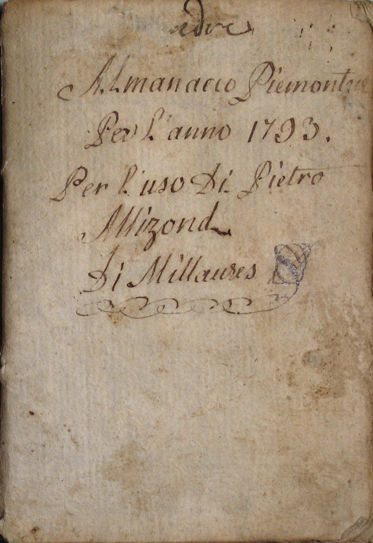 Almanacco Piemontese
Per l'anno 1793.
Per l'uso Di Pietro
Allizond
Di Millaures